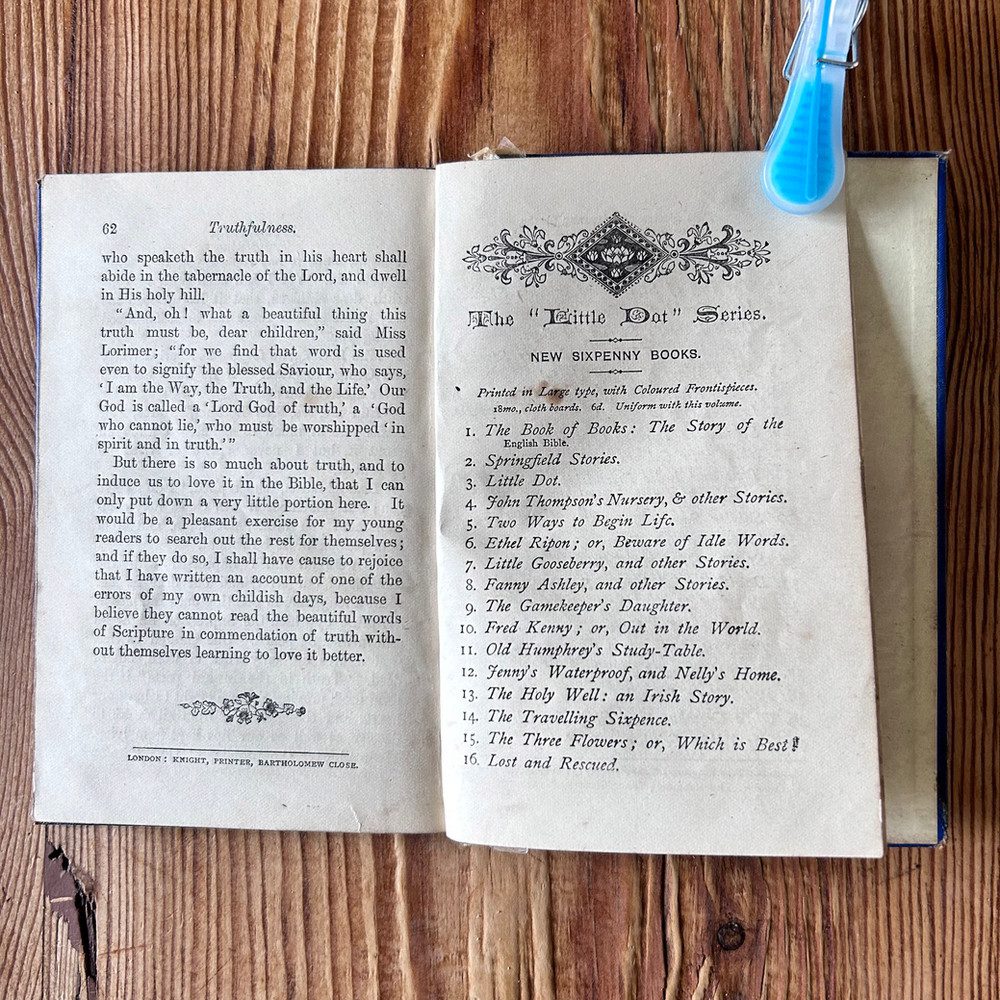 62
Truthfulness.
who speaketh the truth in his heart shall
abide in the tabernacle of the Lord, and dwell
in His holy hill.
“And, oh! what a beautiful thing this
truth must be, dear children,” said Miss
Lorimer; “for we find that word is used
even to signify the blessed Saviour, who says,
‘I am the Way, the Truth, and the Life.’ Our
God is called a ‘Lord God of truth,’ a ‘God
who cannot lie,’ who must be worshipped ‘in
spirit and in truth.’”
But there is so much about truth, and to
induce us to love it in the Bible, that I can
only put down a very little portion here. It
would be a pleasant exercise for my young
readers to search out the rest for themselves;
and if they do so, I shall have cause to rejoice
that I have written an account of one of the
errors of my own childish days, because I
believe they cannot read the beautiful words
of Scripture in commendation of truth with-
out themselves learning to love it better.
LONDON: KNIGHT, PRINTER, BARTHOLOMEW CLOSE.
The “Little Dot” Series.
NEW SIXPENNY BOOKS.
Printed in Large type, with Coloured Frontispieces.
18mo., cloth boards. 6d. Uniform with this volume.
1. The Book of Books: The Story of the
English Bible.
2. Springfield Stories.
3. Little Dot.
4. John Thompson's Nursery, & other Stories.
5. Two Ways to Begin Life.
6. Ethel Ripon; or, Beware of Idle Words.
7. Little Gooseberry, and other Stories.
8. Fanny Ashley, and other Stories.
9. The Gamekeeper's Daughter.
10. Fred Kenny; or, Out in the World.
11. Old Humphrey's Study-Table.
12. Jenny's Waterproof, and Nelly's Home.
13. The Holy Well: an Irish Story.
14. The Travelling Sixpence.
15. The Three Flowers; or, Which is Best?
16. Lost and Rescued.